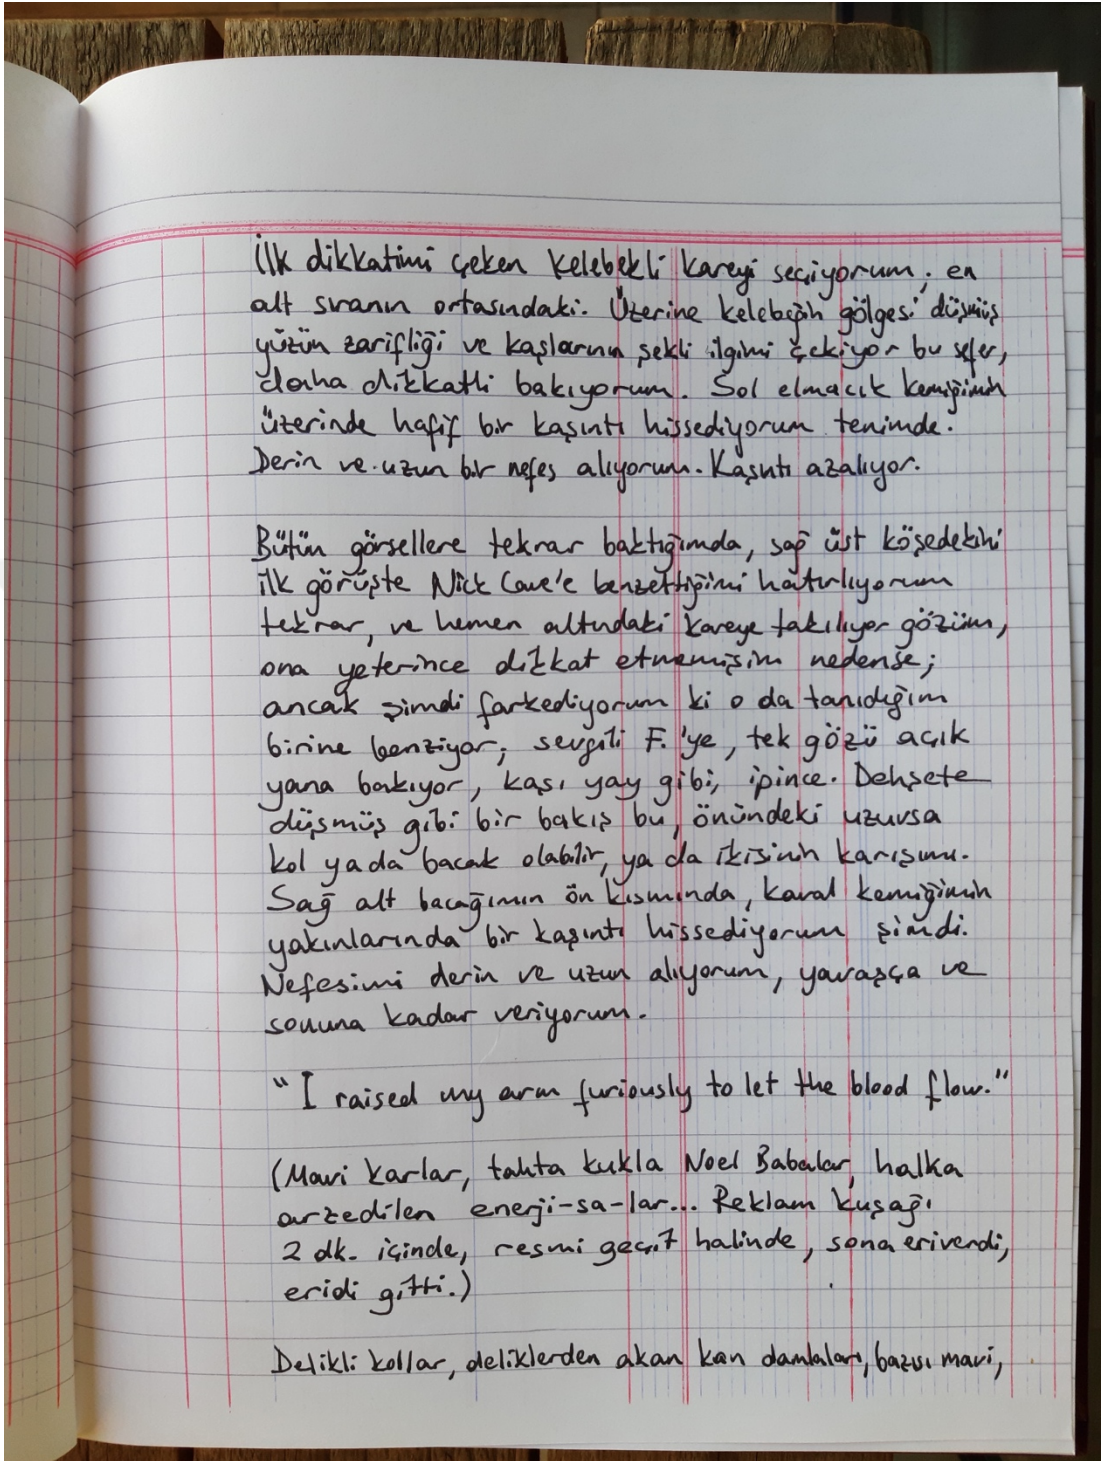 İlk dikkatimi çeken kelebekli kareyi seçiyorum; en
alt sıranın ortasındaki. Üzerine kelebeğin gölgesi düşmüş
yüzün zarifliği ve kaşlarının şekli ilgimi çekiyor bu sefer,
daha dikkatli bakıyorum. Sol elmacık kemiğimin
üzerinde hafif bir kaşıntı hissediyorum tenimde.
Derin ve uzun bir nefes alıyorum. Kaşıntı azalıyor.
Bütün görsellere tekrar baktığımda, sağ üst köşedekini
ilk görüşte Nick Cave'e benzettiğimi hatırlıyorum
tekrar, ve hemen altındaki kareye takılıyor gözüm,
ona yeterince dikkat etmemişim nedense;
ancak şimdi farkediyorum ki o da tanıdığım
birine benziyor; sevgili F.'ye, tek gözü açık
yana bakıyor, kaşı yay gibi, ipince. Dehşete
düşmüş gibi bir bakış bu, önündeki uzuvsa
kol yada bacak olabilir, ya da ikisinin karışımı.
Sağ alt bacağımın ön kısmında, kaval kemiğimin
yakınlarında bir kaşıntı hissediyorum şimdi.
Nefesimi derin ve uzun alıyorum, yavaşça ve
sonuna kadar veriyorum.
"I raised my arm furiously to let the blood flow."
(Mavi karlar, tahta kukla Noel Babalar, halka
arzedilen enerji-sa-lar... Reklam kuşağı
2 dk. içinde, resmi geçit halinde, sona eriverdi,
eridi gitti.)
Delikli kollar, deliklerden akan kan damlaları, bazısı mavi,